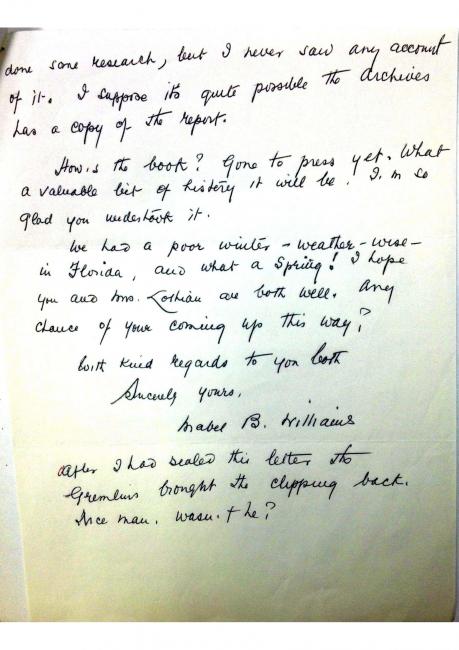 done some research, but I never saw any account
of it. I suppose its quite possible the Archives
has a copy of the report.
How.s the book? Gone to press yet. What
a valuable bit of history it will be. I.m so
glad you undertook it.
We had a poor winter - weather-wise-
in Florida, and what a Spring! I hope
you and Mrs. Lothian are both well. Any
chance of your coming up this way?
With kind regards to you both
Sincerely yours,
Mabel B. Williams
After I had sealed this letter the
Gremlins brought the clipping back.
Nice man. wasn.t he?